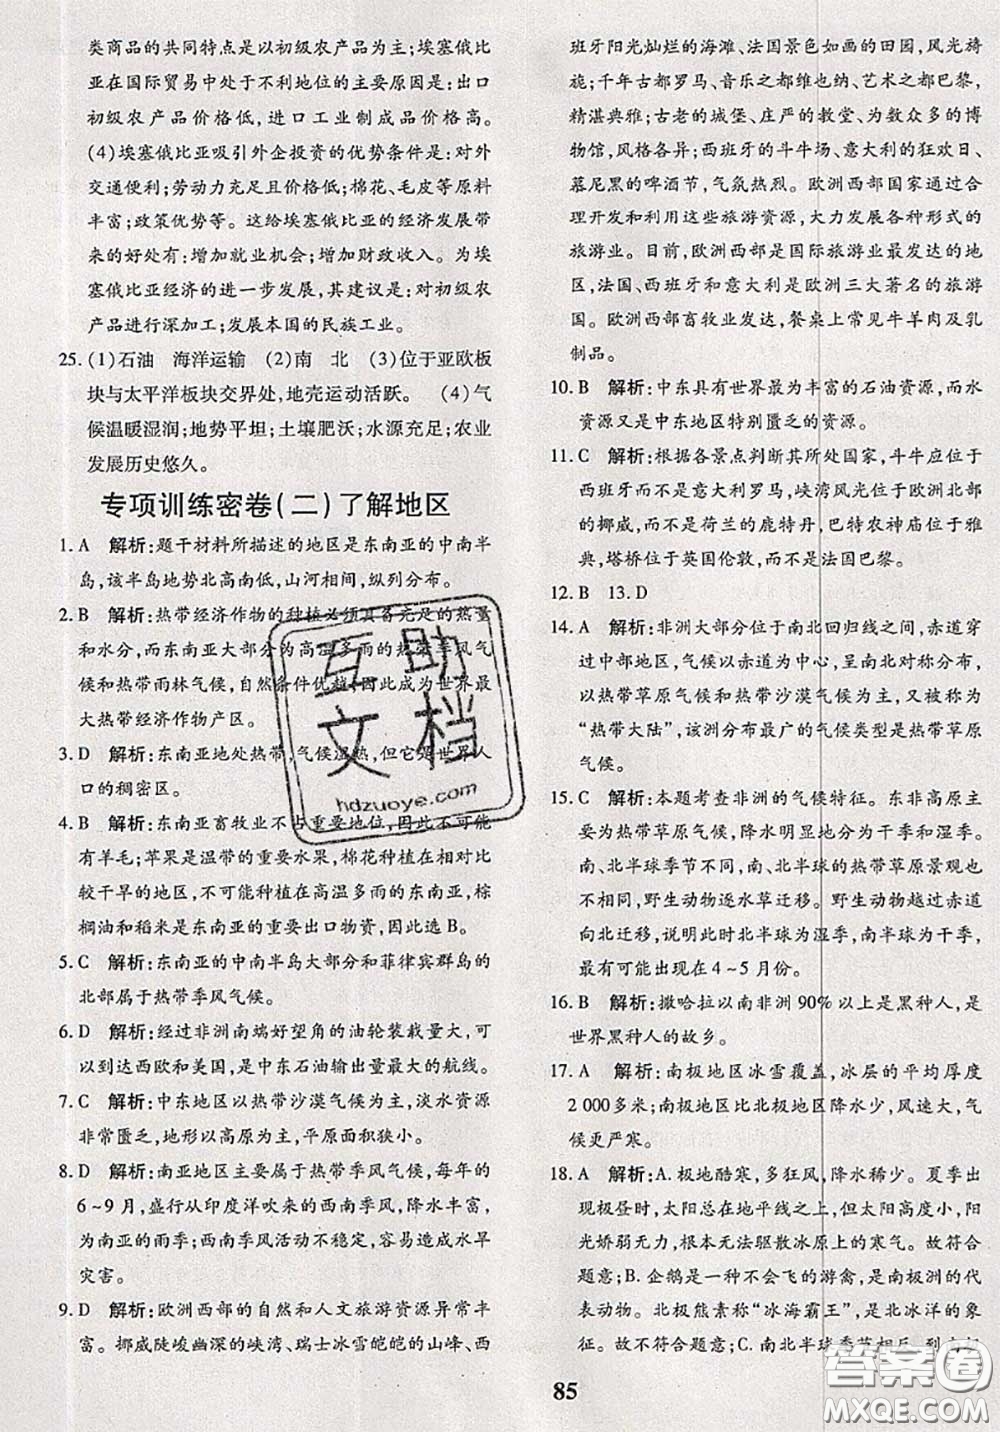 类商品的共同特点是以初级农产品为主;埃塞俄比
亚在国际贸易中处于不利地位的主要原因是:出口
初级农产品价格低,进口工业制成品价格高。
(4)埃塞俄比亚吸引外企投资的优势条件是:对外
交通便利;劳动力充足且价格低;棉花、毛皮等原料
丰富;政策优势等。这给埃塞俄比亚的经济发展带
来的好处有:增加就业机会;增加财政收入。为埃
塞俄比亚经济的进一步发展,其建议是:对初级农
产品进行深加工;发展本国的民族工业。
25. (1)石油 海洋运输 (2)南 北 (3)位于亚欧板
块与太平洋板块交界处,地壳运动活跃。 (4)气
候温暖湿润;地势平坦;土壤肥沃;水源充足;农业
发展历史悠久。
专项训练密卷(二)了解地区
1. A 解析:题干材料所描述的地区是东南亚的中南半
岛,该半岛地势北高南低,山河相间,纵列分布。
2. B 解析:热带经济作物的种植必须具备充足的热量
和水分,而东南亚大部分为高温多雨的热带季风气
候和热带雨林气候,自然条件优越,因此成为世界最
大热带经济作物产区。
3. D 解析:东南亚地处热带,气候湿热,但它是世界人
口的稠密区。
4. B 解析:东南亚畜牧业不占重要地位,因此不可能
有羊毛;苹果是温带的重要水果,棉花种植在相对比
较干旱的地区,不可能种植在高温多雨的东南亚,棕
榈油和稻米是东南亚的重要出口物资,因此选B。
5. C 解析:东南亚的中南半岛大部分和菲律宾群岛的
北部属于热带季风气候。
6. D 解析:经过非洲南端好望角的油轮装载量大,可
以到达西欧和美国,是中东石油输出量最大的航线。
7. C 解析:中东地区以热带沙漠气候为主,淡水资源
非常匮乏,地形以高原为主,平原面积狭小。
8. D 解析:南亚地区主要属于热带季风气候,每年的
6~9月,盛行从印度洋吹来的西南季风,降水丰富,
为南亚的雨季;西南季风活动不稳定,容易造成水旱
灾害。
9. D 解析:欧洲西部的自然和人文旅游资源异常丰
富。挪威陡峻幽深的峡湾、瑞士冰雪皑皑的山峰、西
班牙阳光灿烂的海滩、法国景色如画的田园,风光旖
旎;千年古都罗马、音乐之都维也纳、艺术之都巴黎,
精湛典雅;古老的城堡、庄严的教堂、为数众多的博
物馆,风格各异;西班牙的斗牛场、意大利的狂欢日、
慕尼黑的啤酒节,气氛热烈。欧洲西部国家通过合
理开发和利用这些旅游资源,大力发展各种形式的
旅游业。目前,欧洲西部是国际旅游业最发达的地
区,法国、西班牙和意大利是欧洲三大著名的旅游
国。欧洲西部畜牧业发达,餐桌上常见牛羊肉及乳
制品。
10. B 解析:中东具有世界最为丰富的石油资源,而水
资源又是中东地区特别匮乏的资源。
11. C 解析:根据各景点判断其所处国家,斗牛应位于
西班牙而不是意大利罗马,峡湾风光位于欧洲北部
的挪威,而不是荷兰的鹿特丹,巴特农神庙位于雅
典,塔桥位于英国伦敦,而不是法国巴黎。
12. B 13. D
14. A 解析:非洲大部分位于南北回归线之间,赤道穿
过中部地区,气候以赤道为中心,呈南北对称分布,
以热带草原气候和热带沙漠气候为主,又被称为
“热带大陆”,该洲分布最广的气候类型是热带草原
气候。
15. C 解析:本题考查非洲的气候特征。东非高原主
要为热带草原气候,降水明显地分为干季和湿季。
南、北半球季节不同,南、北半球的热带草原景观也
不相同,野生动物逐水草迁移。野生动物越过赤道
向北迁移,说明此时北半球为湿季,南半球为干季,
最有可能出现在4~5月份。
16. B 解析:撒哈拉以南非洲90%以上是黑种人,是
世界黑种人的故乡。
17. A 解析:南极地区冰雪覆盖,冰层的平均厚度
2 000多米;南极地区比北极地区降水少,风速大,气
候更严寒。
18. A 解析:A. 极地酷寒,多狂风,降水稀少。夏季出
现极昼时,太阳总在地平线之上,但太阳高度小,阳
光娇弱无力,根本无法驱散冰原上的寒气。故符合
题意;B. 企鹅是一种不会飞的游禽,是南极洲的代
表动物。北极熊素称“冰海霸王”,是北冰洋的象
征。故不符合题意;C. 南北半球季节相反,到南极
85
互助
文档
hdzuoye.com
答案圈
MXQE.COM